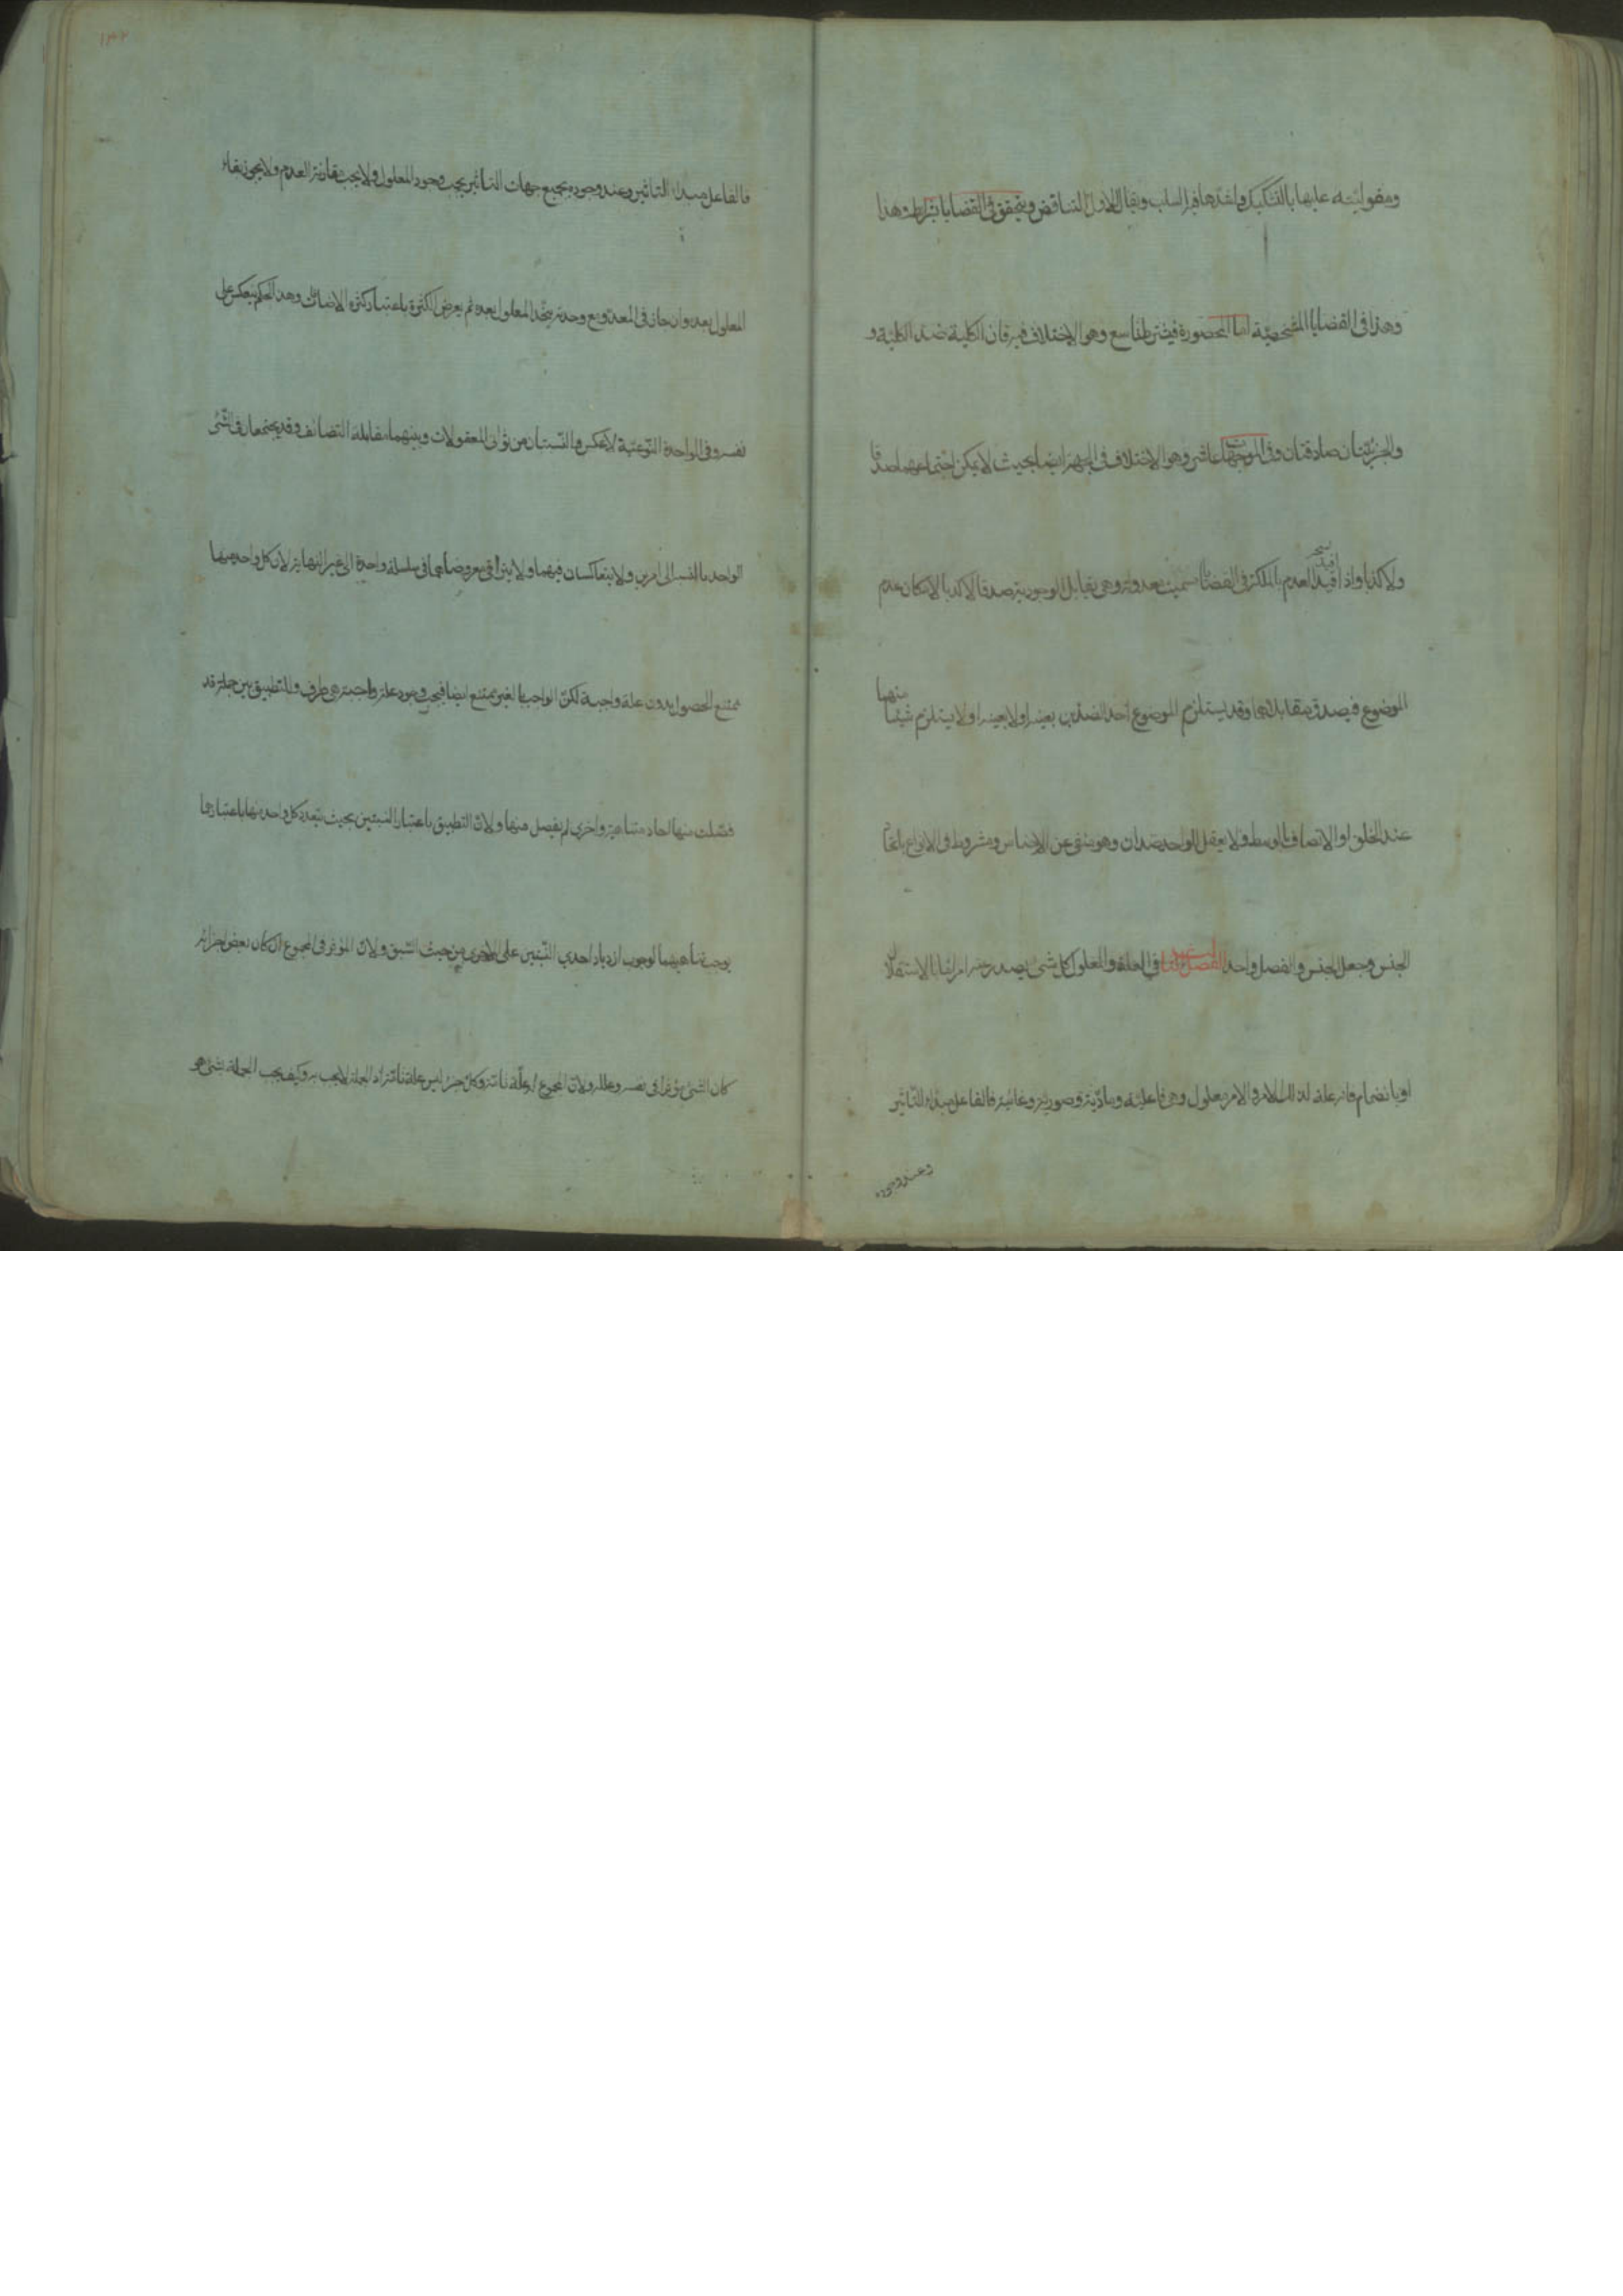 ومقوليته عليها بالتشكيك واشدها فيه السلب ويقال للاول التناقض ويتحقق في القضايا بشرايط وهذا
وهذا في القضايا الشخصية اما المحصورة فيشترط تاسع وهو الاختلاف فيه فان الكلية ضد الكلية و
والجزئيتان صادقتان وفي الموجهات عاشر وهو الاختلاف في الجهة ايضا بحيث لا يمكن اجتماعهما صدقا
ولا كذبا واذا قيد العدم بالملكة في القضايا سميت معدولة وهي تقابل الوجودية صدقا لا كذبا لامكان عدم
الموضوع فيصدق مقابلاهما وقد يستلزم الموضوع احد الضدين بعينه او لا بعينه او لا يستلزم شيئا منهما
عند الخلو او الاتصاف بالوسط ولا يعقل للواحد ضدان وهو منفي عن الاجناس ومشروط في الانواع باتحاد
الجنس وجعل الجنس والفصل واحد الفصل الثالث في العلة والمعلول كل شئ يصدر عنه امر اما بالاستقلال
او بانضمام فانه علة لذلك الامر والامر معلول وهي فاعلية ومادية وصورية وغائية فالفاعل مبداء التاثير
وعند وجوده
١٣٢
فالفاعل مبداء التاثير وعند وجوده بجميع جهات التاثير يجب وجود المعلول ولا يجب مقارنة العدم ولا يجوز بقاء
المعلول بعده وان جاز في المعد ومع وحدته يتحد المعلول بعده ثم يعرض الكثرة باعتبار كثرة الاضافات وهذا الحكم ينعكس على
نفسه وفي الواحدة النوعية لا عكس والنسبتان من ثواني المعقولات وبينهما مقابلة التضايف وقد يجتمعان في الشئ
الواحد بالنسبة الى امرين ولا يتعاكسان فيهما ولا يتراقى معروضاهما في سلسلة واحدة الى غير النهاية لان كل واحد منها
ممتنع الحصول بدون علة واجبة لكن الواجب بالغير ممتنع ايضا فيجب وجود علة واجبة هي طرف وللتطبيق بين جملة قد
فصلت منها احاد متناهية واخرى لم يفصل منها ولان التطبيق باعتبار النسبتين بحيث يتعدد كل واحد منها باعتبارهما
يوجب تناهيهما لوجوب ازدياد احدى النسبتين على الاخرى من حيث السبق ولان المؤثر في المجموع ان كان بعض اجزائه
كان الشئ مؤثرا في نفسه وعلله ولان المجموع له علة تامة وكل جزء ليس علة تامة اذ الجملة لا يجب به وكيف يجب الجملة بشئ هو